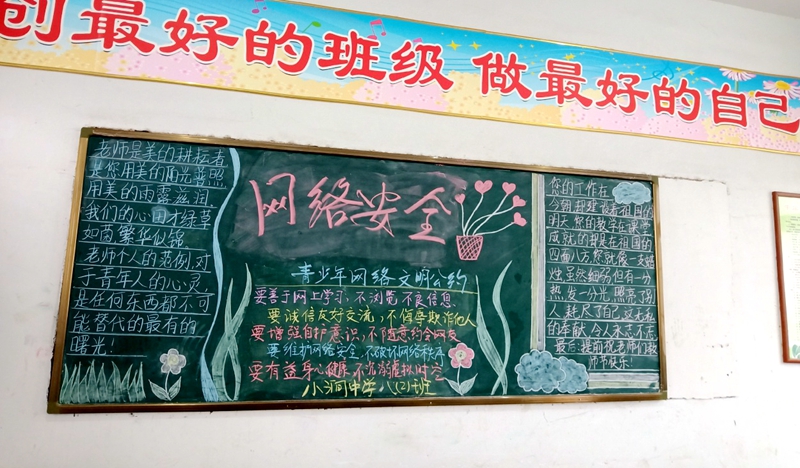 创最好的班级 做最好的自己
老师是美的耕耘者
是您用美的阳光普照
用美的雨露滋润
我们的心田才绿草
如茵繁华似锦
老师个人的范例,对
于青年人的心灵,
是任何东西都不可
能替代的最有的
曙光!
网络安全
青少年网络文明公约
要善于网上学习,不浏览不良信息
要诚信友好交流,不侮辱欺诈他人
要增强自护意识,不随意约会网友
要维护网络安全,不破坏网络秩序
要有益身心健康,不沉溺虚拟时空
小涧中学八(2)班
您的工作在
今朝却建设着祖国的
明天,您的教学在课堂
成就的却是在祖国的
四面八方,您就像一支蜡
烛虽然细弱但有一分
热,发一分光,照亮了别
人,耗尽了自己,这无私
的奉献,令人永志不忘
最后提前祝老师们教
师节快乐!